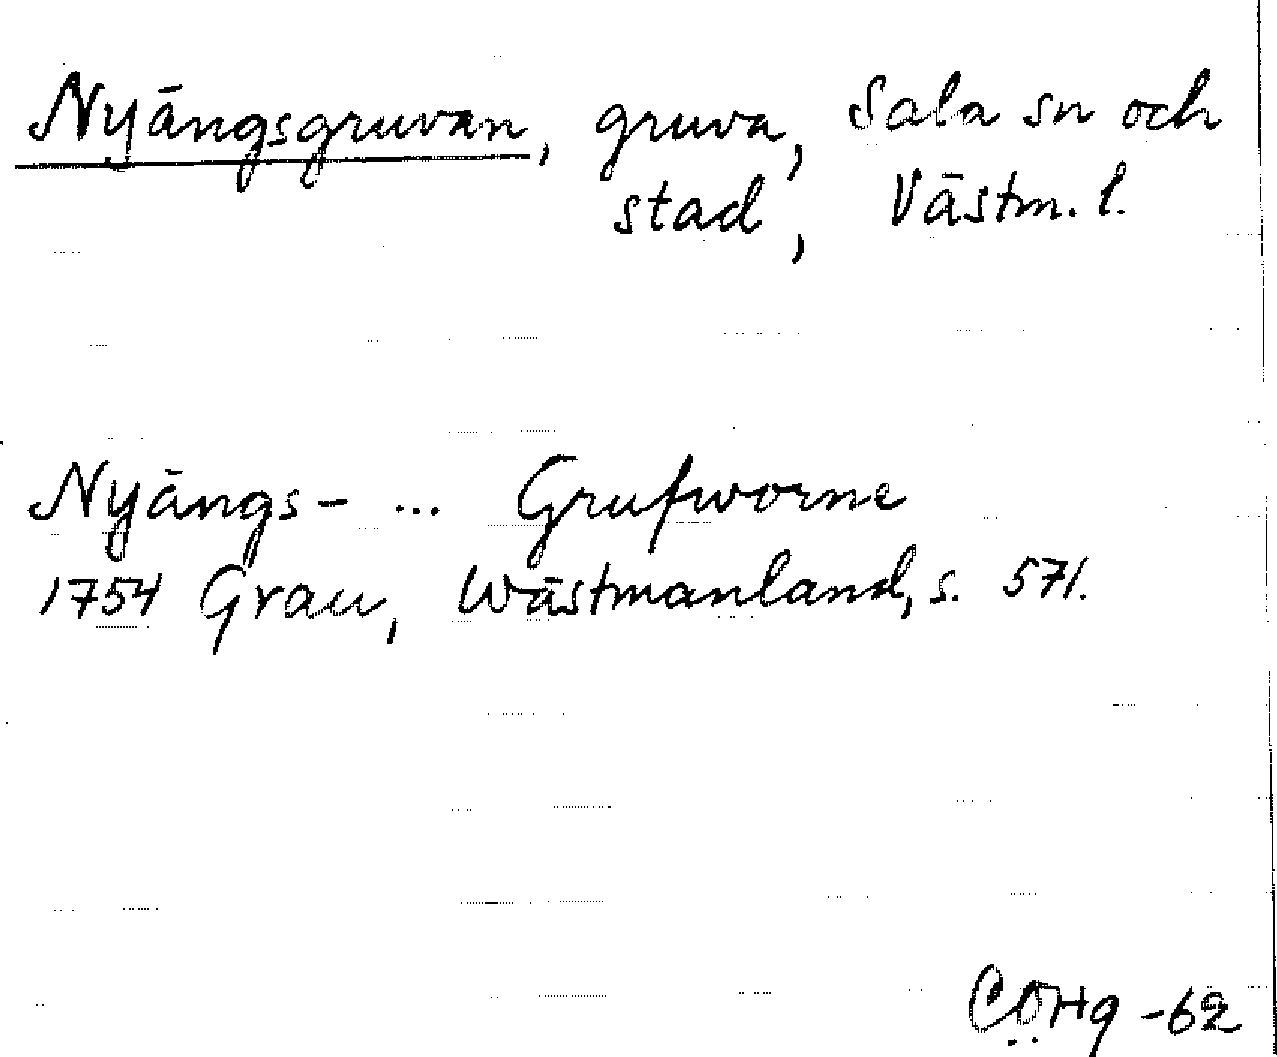 Nyängsgruvan, gruva, Sala sn och
stad, Västm. l.
Nyängs- ... Grufworne
1754 Grau, Wästmanland, s. 571.
CÖHg -62